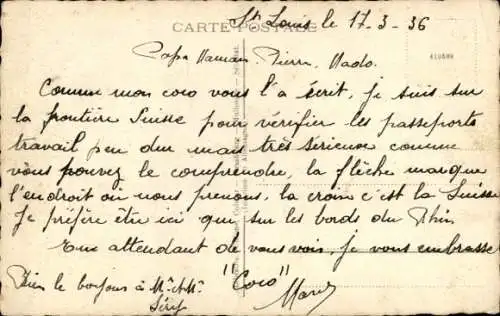 CARTE POSTALE
St Louis le 17-3-36
Papa Maman Pierre, Mado.
Comme mon coco vous l'a écrit, je suis sur
la frontière Suisse pour vérifier les passeports
travail peu dur mais très sérieuse comme
vous pouvez le comprendre, la flèche marque
l'endroit ou nous prenons, la croix c'est la Suisse
Je préfère être ici que sur les bords du Rhin
En attendant de vous voir, je vous embrasse
Bien le bonjour à Mr. & Mme
"Coco"